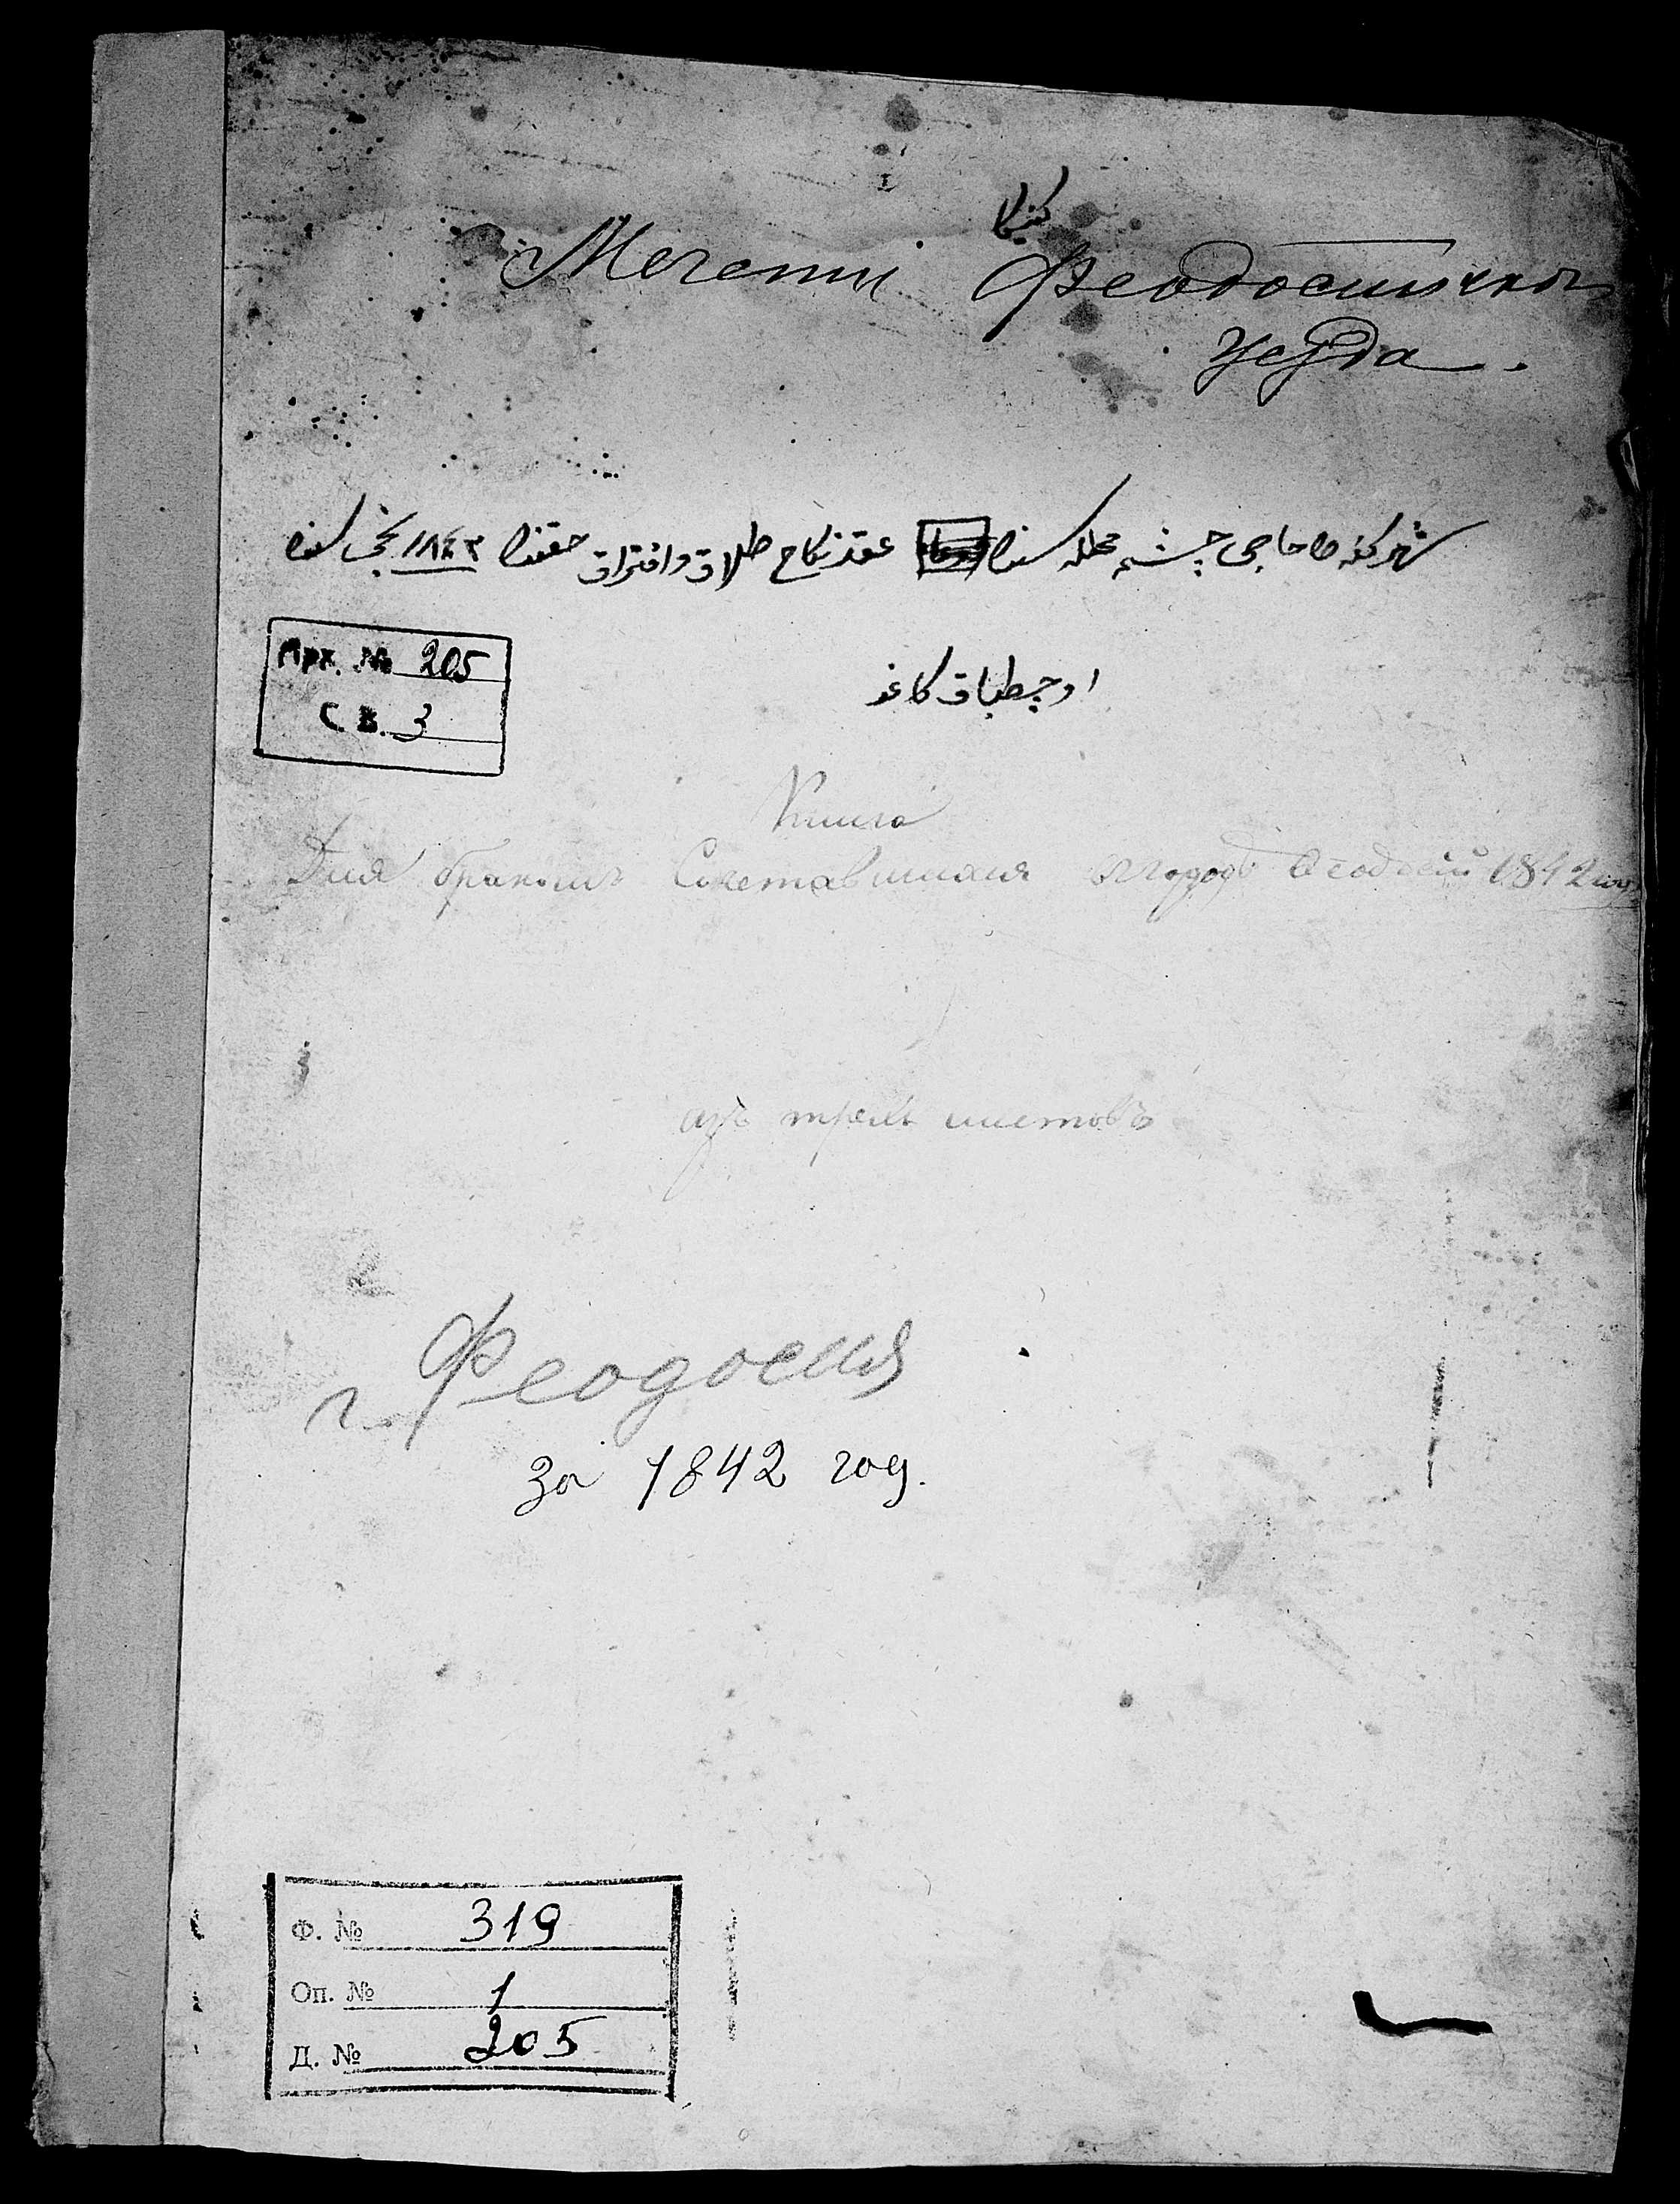 Мечети Феодосийскаго
уезда.
شهر كفه ده حاجی چشمه محله سنده عقد نكاح طلاق و افتراق حقنده ١٨٤٢ نجی سنه
Арх. № 205
Св. 3
اوچ طباق كاغد
Книга
Для браком Сочетавшихся в городе Феодосии 1842 году
из трех листовъ
г. Феодосия
за 1842 год.
Ф. № 319
Оп. № 1
Д. № 205